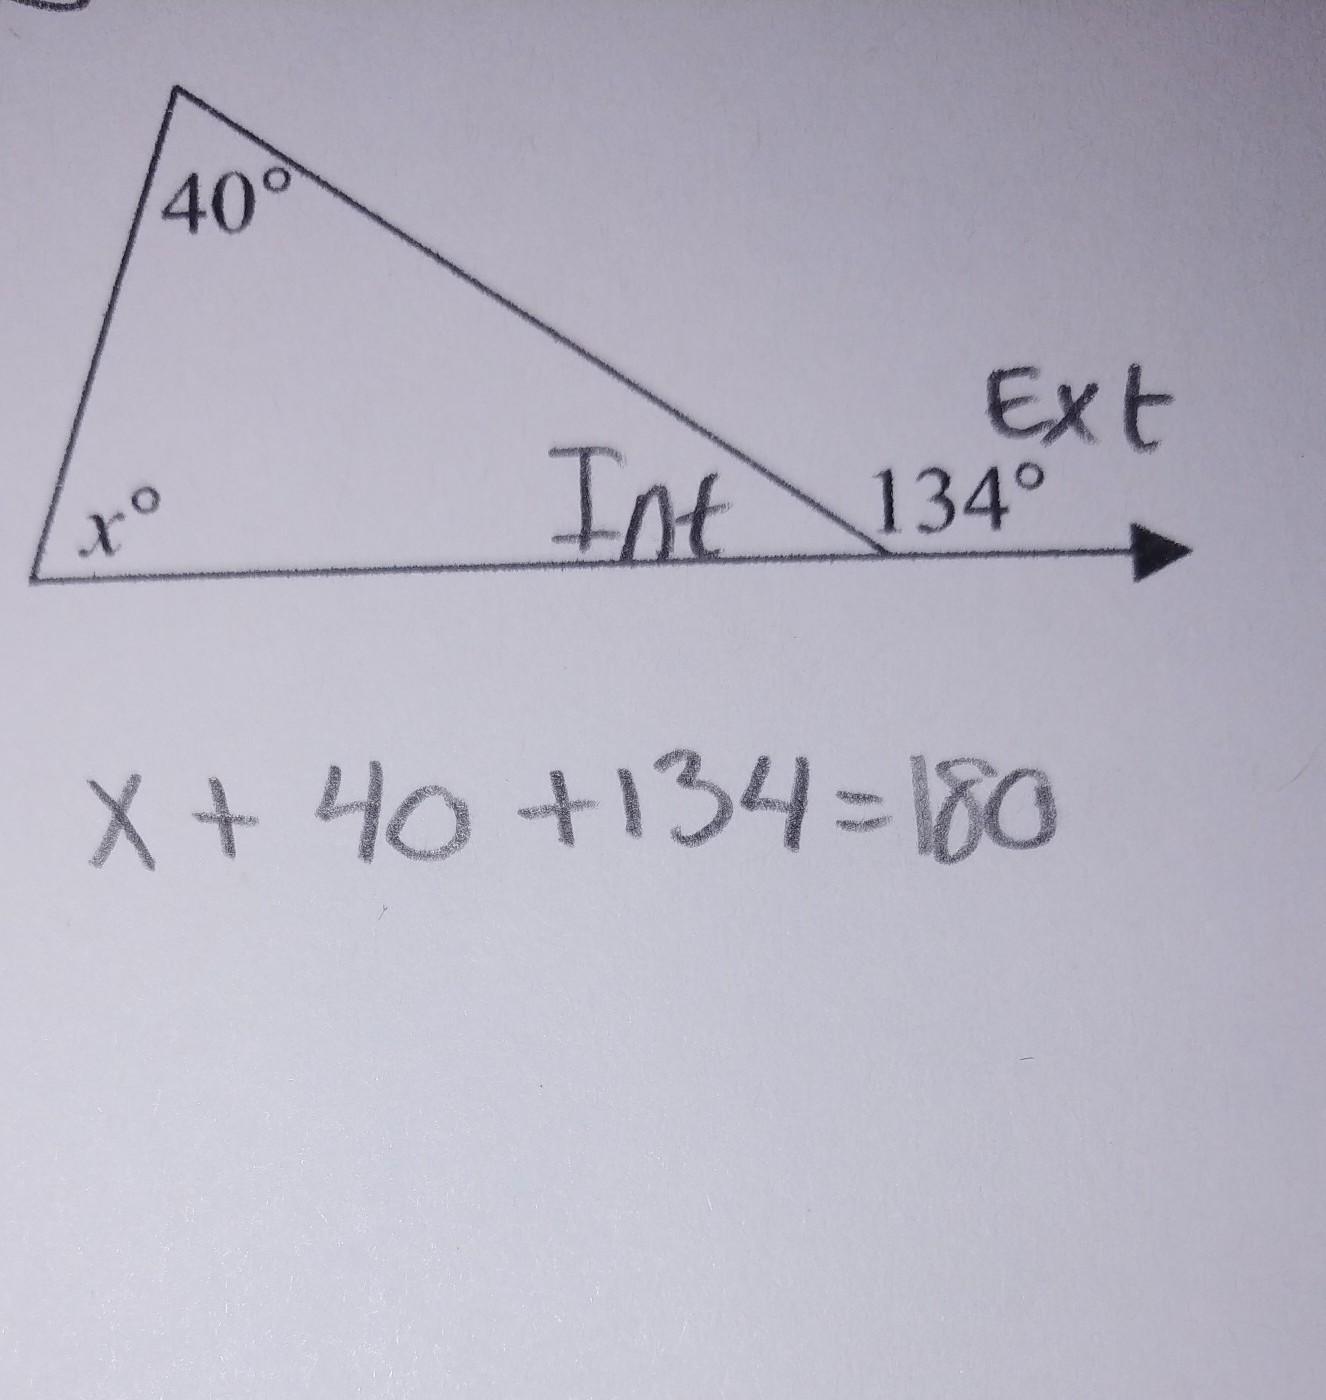 40°
Ext
134°
Int
x°
x + 40 + 134 = 180